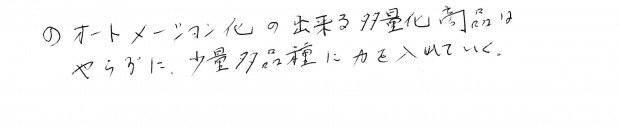 ① オートメーション化の出来る多量化商品は
やらずに、少量多品種に力を入れていく。